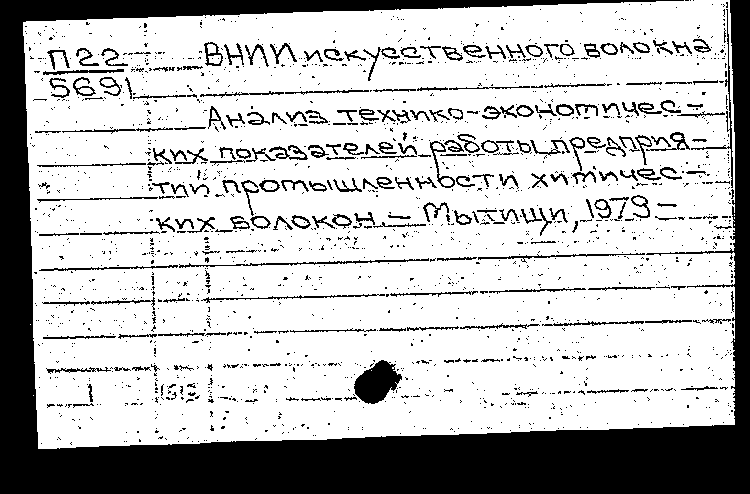 П22 ВНИИ искусственного волокна
5691
Анализ технико-экономичес-
ких показателей работы предприя-
тий промышленности химичес-
ких волокон. – Мытищи, 1979 –
1